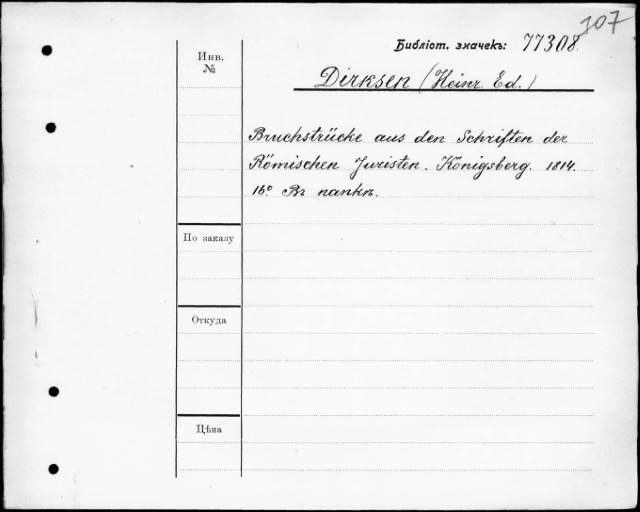 107
Библіот. значекъ: 77308.
Инв.
№
Dirksen (Heinr. Ed.)
Bruchstücke aus den Schriften der
Römischen Juristen. Königsberg. 1814.
16° Въ папкѣ.
По заказу
Откуда
Цѣна